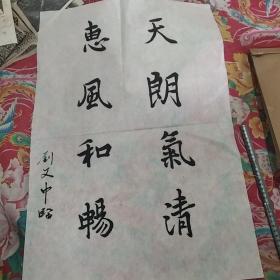 天朗氣清
恵風和暢
劉文中昭